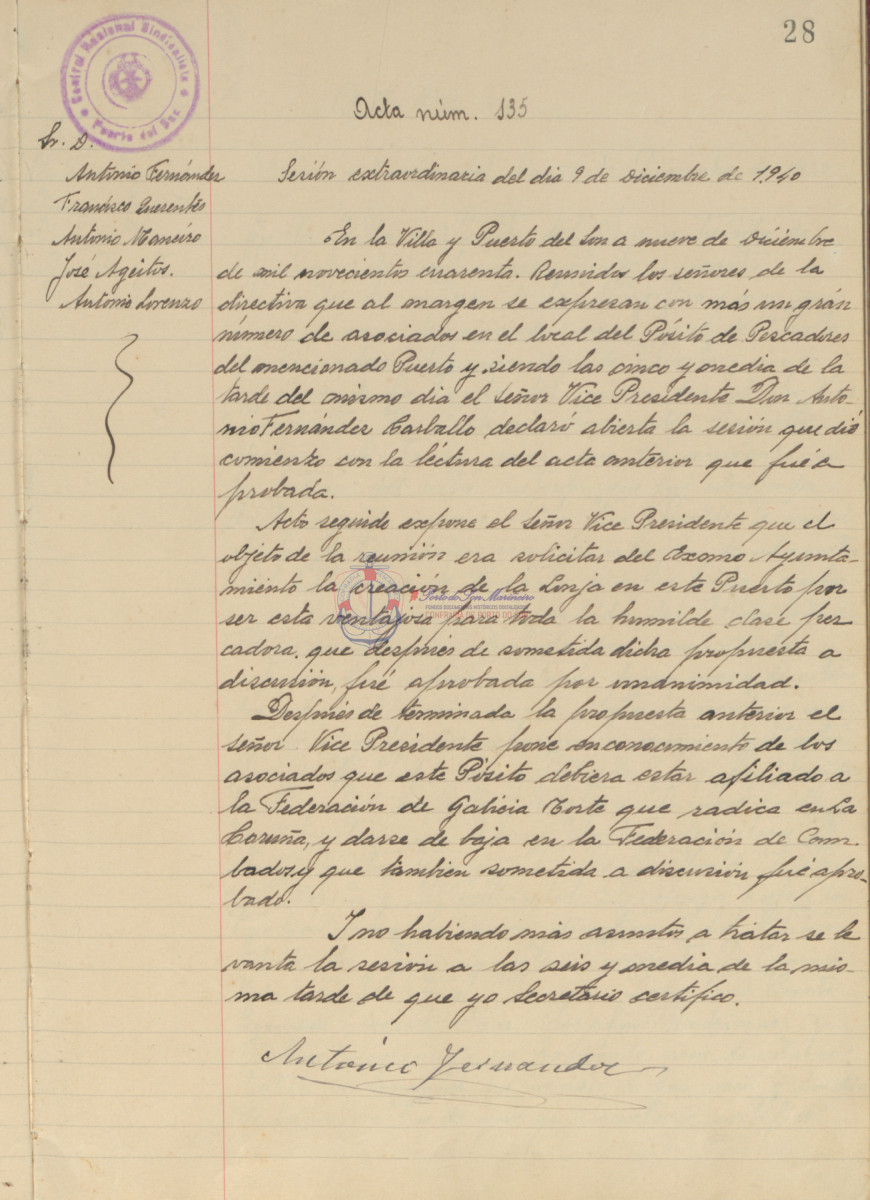 28
Central Nacional Sindicalista
Puerto del Son
Acta núm. 135
Sr. D.
Antonio Fernández
Francisco
Antonio Maneiro
José Ageitos.
Antonio Lorenzo
Sesión extraordinaria del dia 9 de Diciembre de 1940
En la Villa y Puerto del Son a nueve de Diciembre
de mil novecientos cuarenta. Reunidos los señores de la
directiva que al margen se expresan con más un grán
número de asociados en el local del Pósito de Pescadores
del mencionado Puerto y siendo las cinco y media de la
tarde del mismo dia el Señor Vice Presidente Don Anto-
nio Fernández Carballo declaró abierta la sesión que dió
comienzo con la léctura del acta anterior que fué a
probada.
Acto seguido expone el Señor Vice Presidente que el
objeto de la reunión era solicitar del Excmo Ayunta-
miento la creación de la Lonja en este Puerto por
ser esta ventajosa para toda la humilde clase pes
cadora, que después de sometida dicha propuesta a
discusión, fué aprobada por unanimidad.
Después de terminada la propuesta anterior el
señor Vice Presidente pone en conocimiento de los
asociados que este Pósito debiera estar afiliado a
la Federación de Galicia Norte que radica en La
Coruña, y darse de baja en la Federación de Cam-
bados, y que tambien sometida a discusión fué apro-
bado.
I no habiendo más asuntos a tratar se le
vanta la sesión a las seis y media de la mis-
ma tarde de que yo Secretario certifico.
Antonio Fernandez
Porto do Son Marineiro